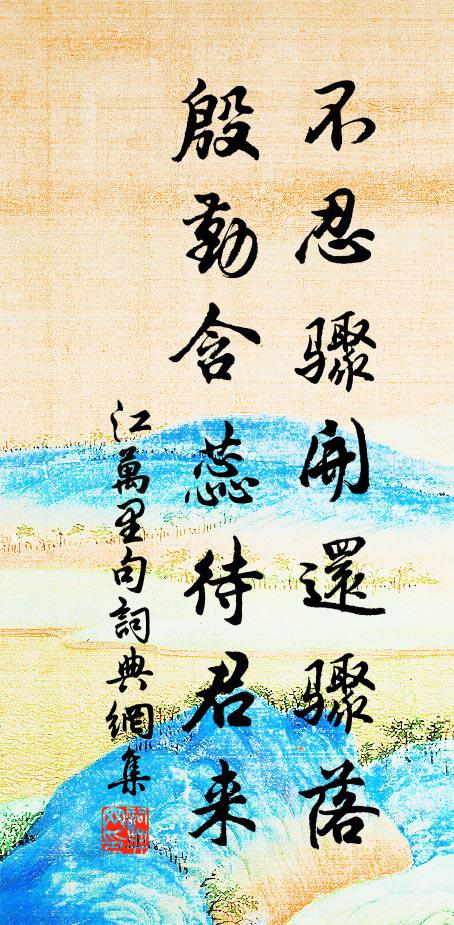 不忍骤開還骤落
殷勤含蕊待君来
江萬里句詞典網集